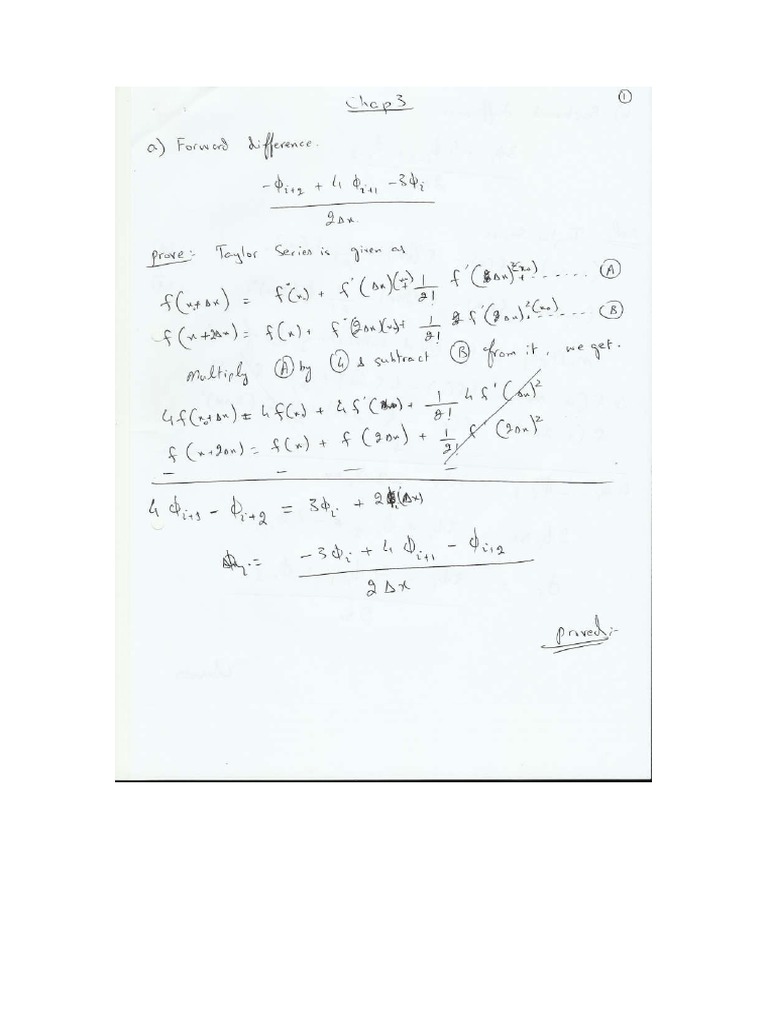 Chap 3
①
a) Forward difference.
-ϕi+2 + 4 ϕi+1 - 3ϕi
2Δx
prove:- Taylor Series is given as
f(x₀+Δx) = f(x₀) + f'(Δx)(x₀)+ 1/2! f'(Δx)²(x₀)+ ...... Ⓐ
f(x+2Δx) = f(x) + f'(2Δx)(x₀)+ 1/2! f'(2Δx)²(x₀)+ ...... Ⓑ
Multiply Ⓐ by ④ & subtract Ⓑ from it, we get.
4f(x₀+Δx) = 4f(x₀) + 4f'(Δx) + 1/2! 4f'(Δx)²
f(x+2Δx) = f(x) + f(2Δx) + 1/2! f'(2Δx)²
- - - -
4 ϕi+1 - ϕi+2 = 3ϕi + 2 (Δx)
= -3ϕi + 4 ϕi+1 - ϕi+2
2Δx
proved:-